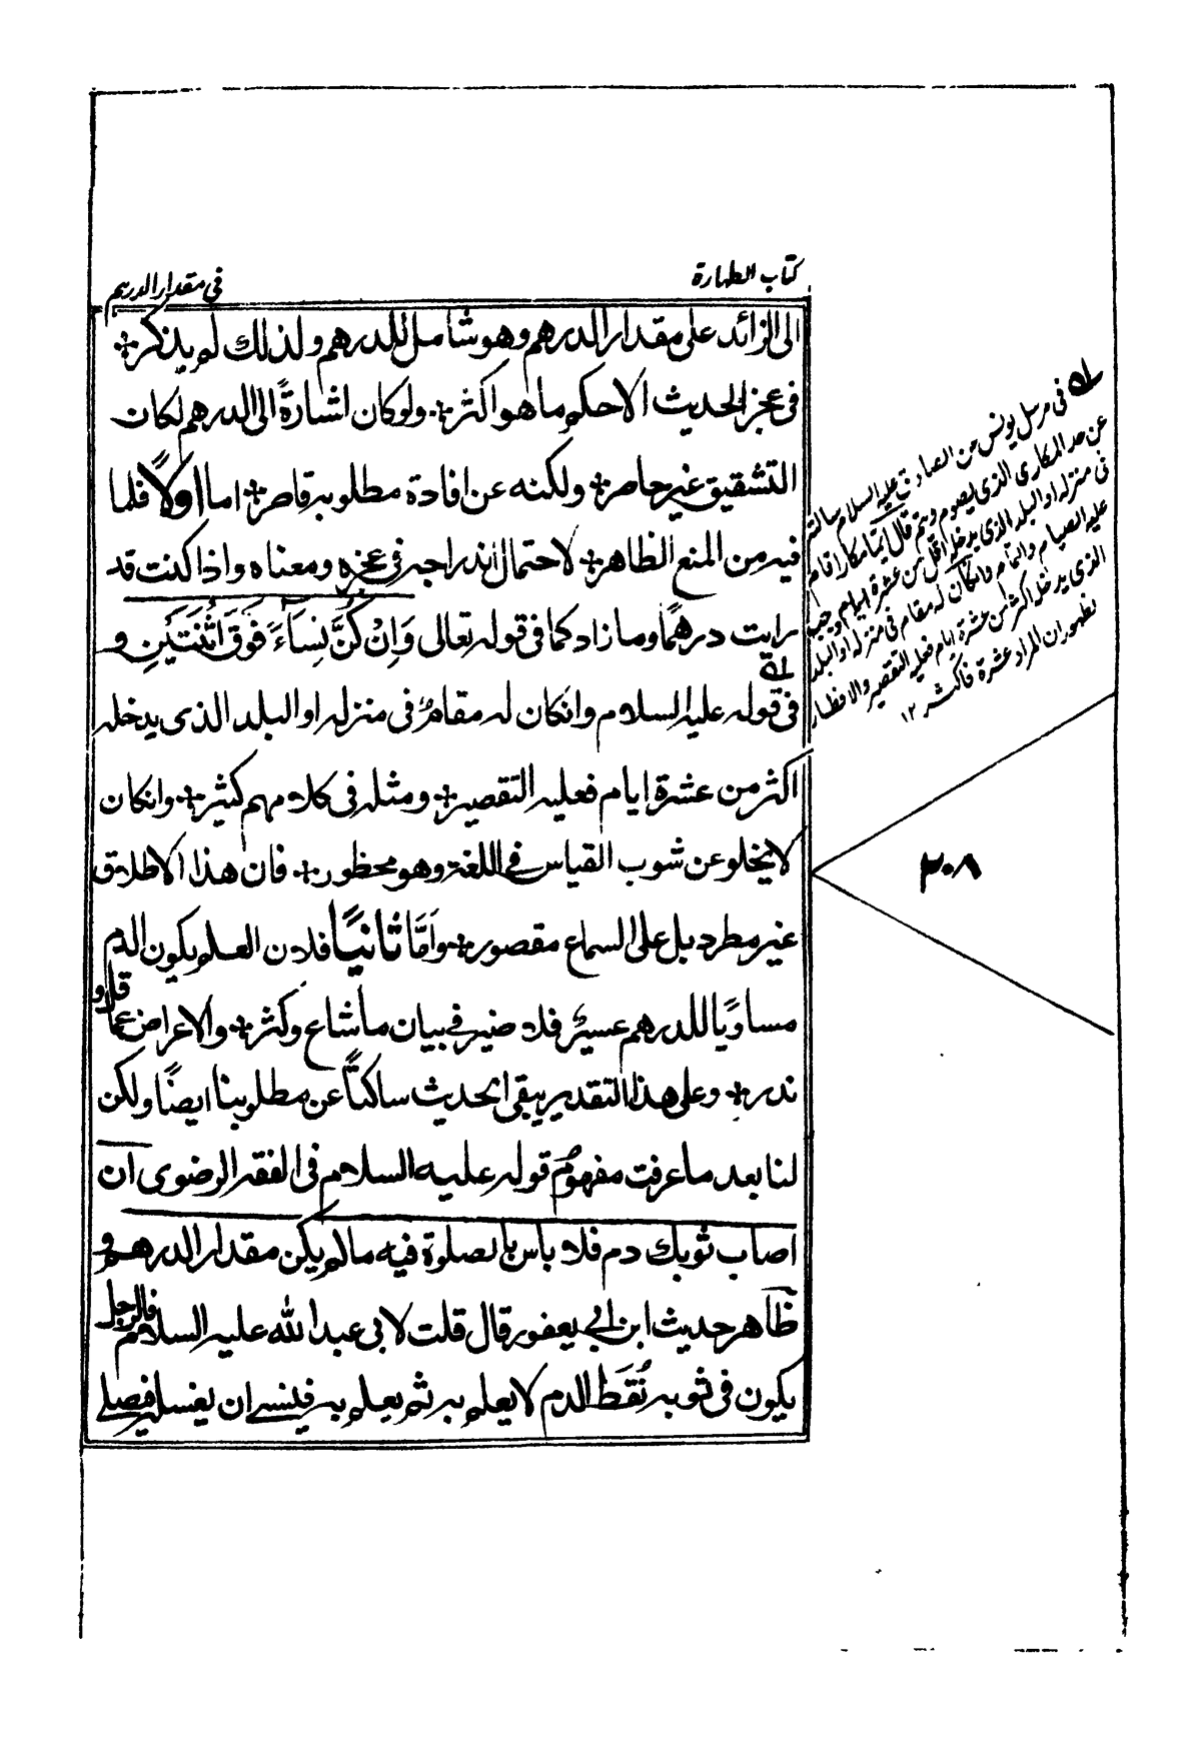 كتاب الطهارة
فى مقدار الدرهم
الى الزائد على مقدار الدرهم وهو شامل للدرهم ولذلك لم يذكر
فى عجز الحديث الا حكم ما هو اكثر ولو كان اشارةً الى الدرهم لكان
التشقيق غير حاصر ولكنه عن افادة مطلوبه قاصر اما اولاً فلما
فيه من المنع الظاهر لاحتمال اندراجه فى عجزه ومعناه واذا كنت قد
رايت درهمًا وما زاد كما فى قوله تعالى وَاِنْ كُنَّ نِسَآءً فَوْقَ اثْنَتَيْنِ و
فى قوله عليه السلام وانكان له مقامٌ فى منزله او البلد الذى يدخله
اكثر من عشرة ايام فعليه التقصير ومثله فى كلامهم كثير وانكان
لا يخلو عن شوب القياس فى اللغة وهو محظور فان هذا الاطلاق
غير مطرد بل على السماع مقصور واَمَّا ثانيًا فلان العلم بكون الدم
مساويًا للدرهم عسيرٌ فلا ضير فى بيان ما شاع وكثر والاعراض عما قل و
ندر وعلى هذا التقدير يبقى الحديث ساكتًا عن مطلوبنا ايضًا ولكن
لنا بعد ما عرفت مفهوم قوله عليه السلام فى الفقه الرضوى ان
اصاب ثوبك دم فلا باس بالصلوة فيه مالم يكن مقدار الدرهم و
ظاهر حديث ابن ابى يعفور قال قلت لابى عبد الله عليه السلام فالرجل
يكون فى ثوبه نُقَط الدم لا يعلم به ثم يعلم به فينسى ان يغسله فيصلى
فى مرسل يونس عن الصادق عليه السلام سالته
عن حد المكارى الذى يصوم ويتم قال ايما مكار اقام
فى منزله او البلد الذى يدخله اقل من عشرة ايام وجب
عليه الصيام والتمام وانكان له مقام فى منزله او البلد
الذى يدخله اكثر من عشرة ايام فعليه التقصير والافطار
لظهور ان المراد عشرة فاكثر ١٢
٢٠٨